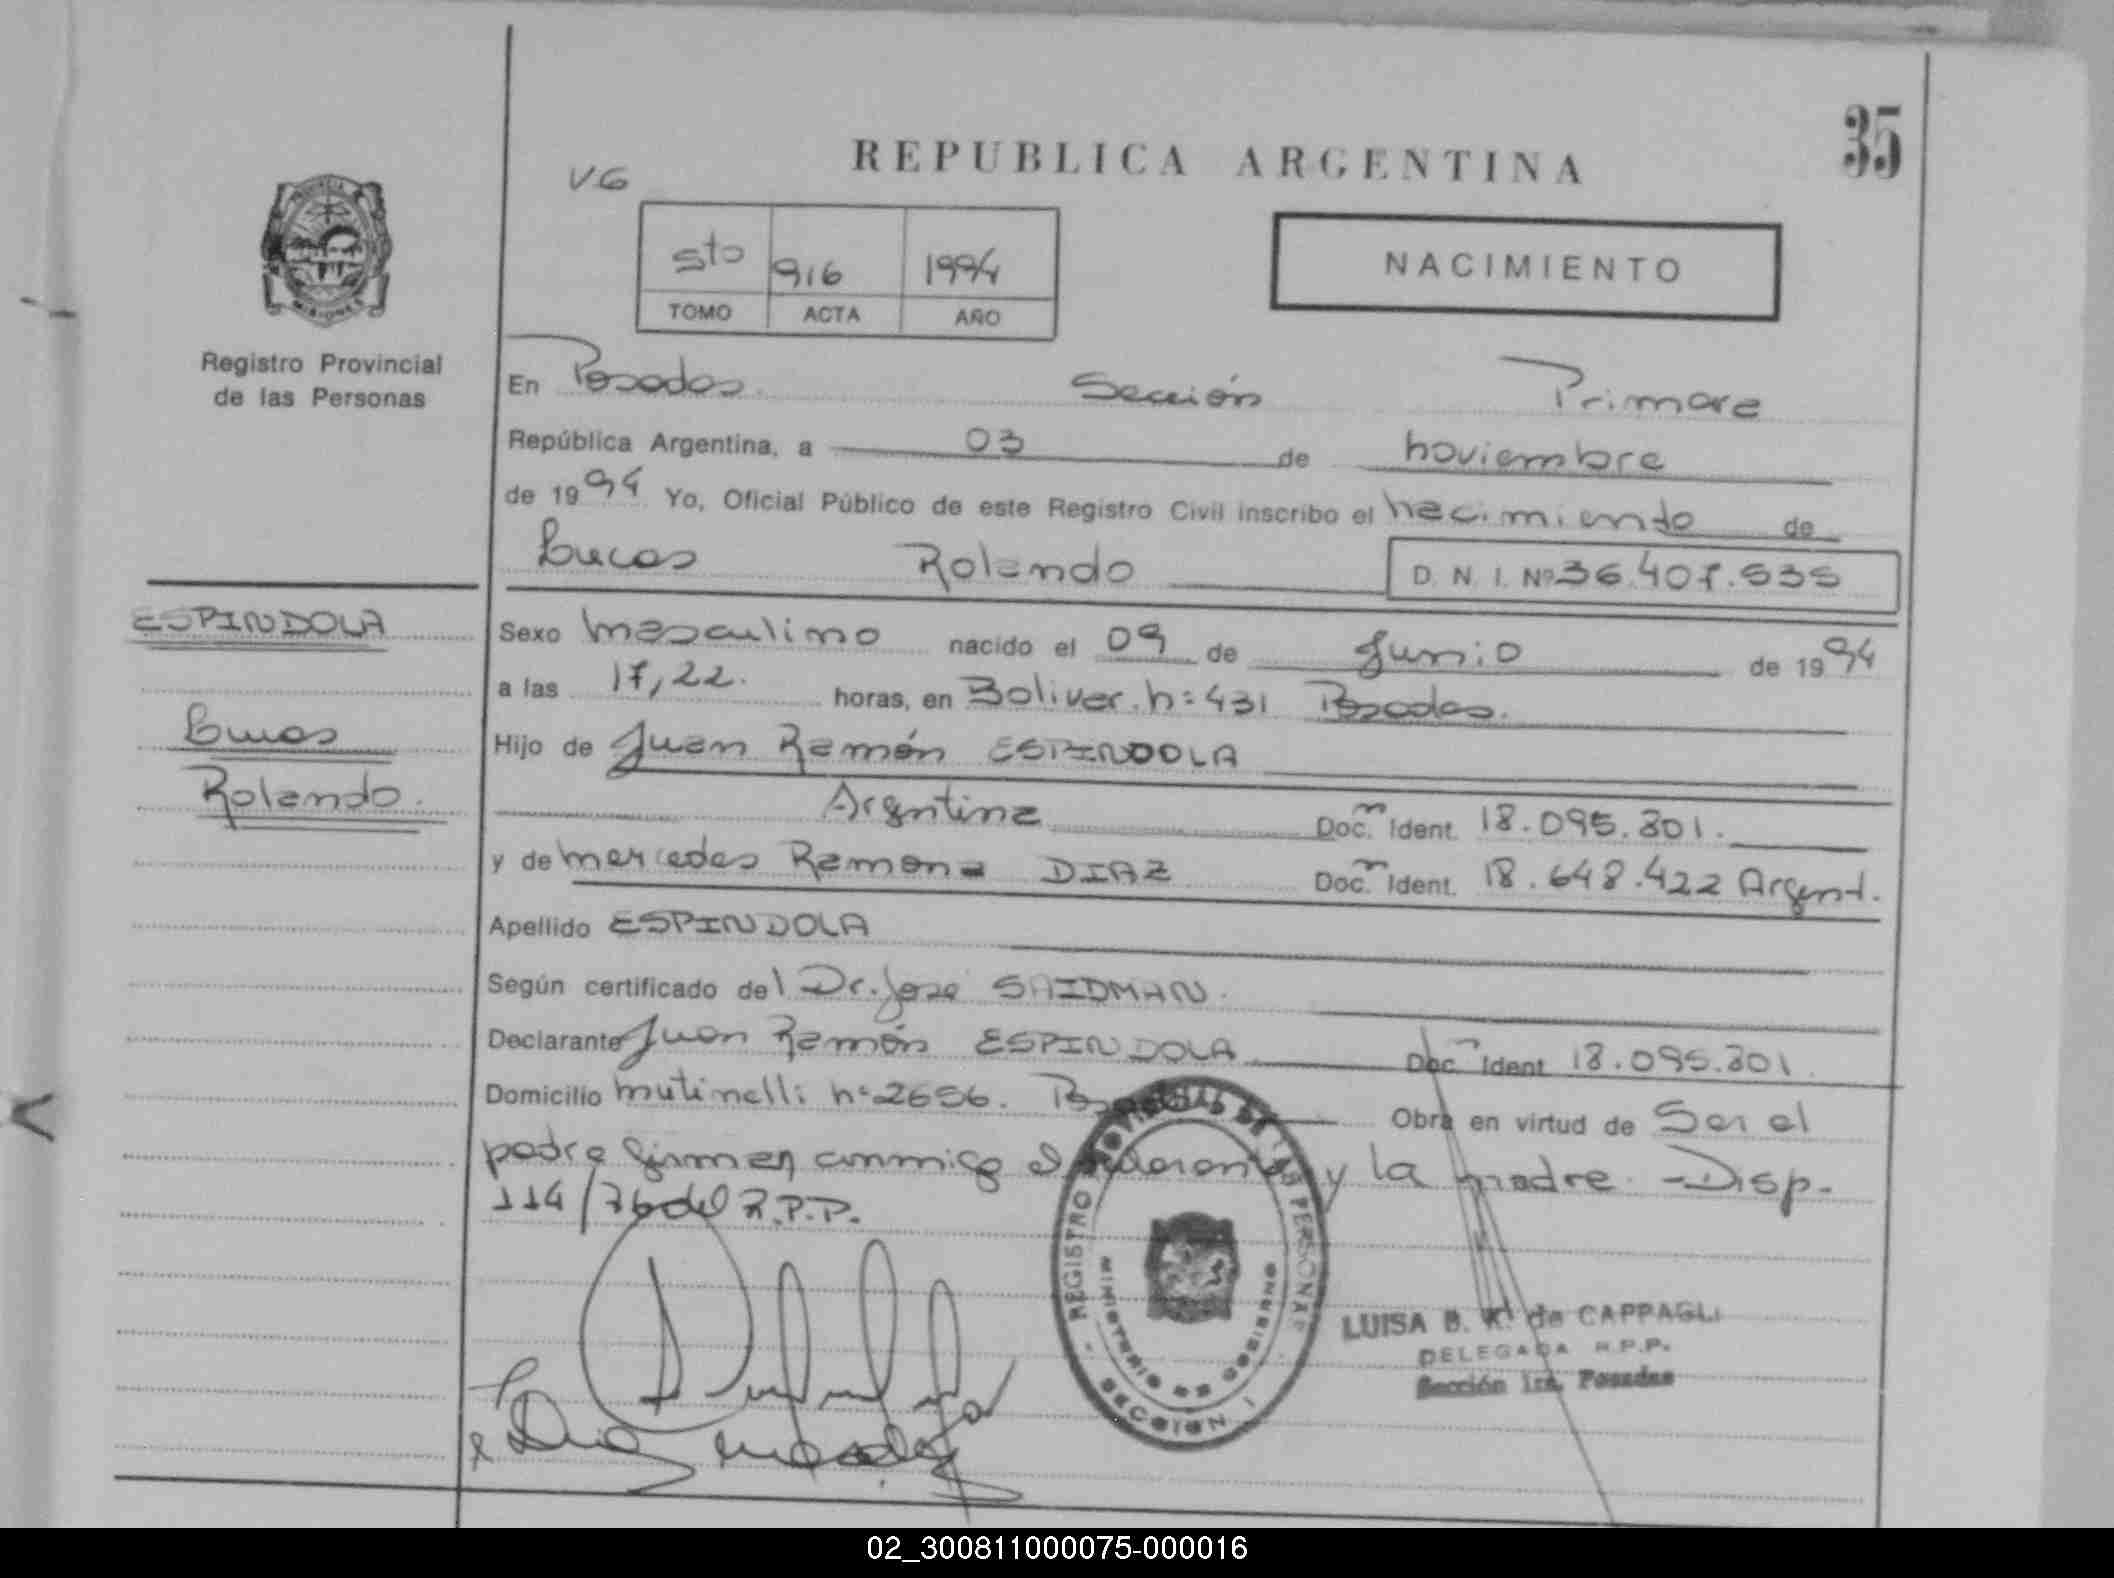 35
REPUBLICA ARGENTINA
VG
5to 916 1994
TOMO ACTA AÑO
NACIMIENTO
Registro Provincial
de las Personas
En Posadas. Sección Primera
República Argentina, a 03 de noviembre
de 1994 Yo, Oficial Público de este Registro Civil inscribo el nacimiento de
Lucas Rolando D. N. I. Nº 36.407.535
ESPINDOLA
Lucas
Rolando.
Sexo masculino nacido el 09 de Junio de 1994
a las 17,22. horas, en Bolivar. n: 431 Posadas.
Hijo de Juan Ramón ESPINDOLA
Argentina Doc. Ident. 18.095.801.
y de mercedes Ramona DIAZ Doc. Ident. 18.648.422 Argent.
Apellido ESPINDOLA
Según certificado del Dr. Jose SAIDMAN.
Declarante Juan Ramón ESPINDOLA Doc. Ident 18.095.801.
Domicilio mutinelli n: 2656. Obra en virtud de Ser el
padre firman conmigo el y la madre. -Disp.
114/76 del R.P.P.
REGISTRO PROVINCIAL DE LAS PERSONAS
MINISTERIO DE GOBIERNO
SECCION 1
LUISA B. K. de CAPPAGLI
DELEGADA R.P.P.
Sección 1ra. Posadas
02_300811000075-000016